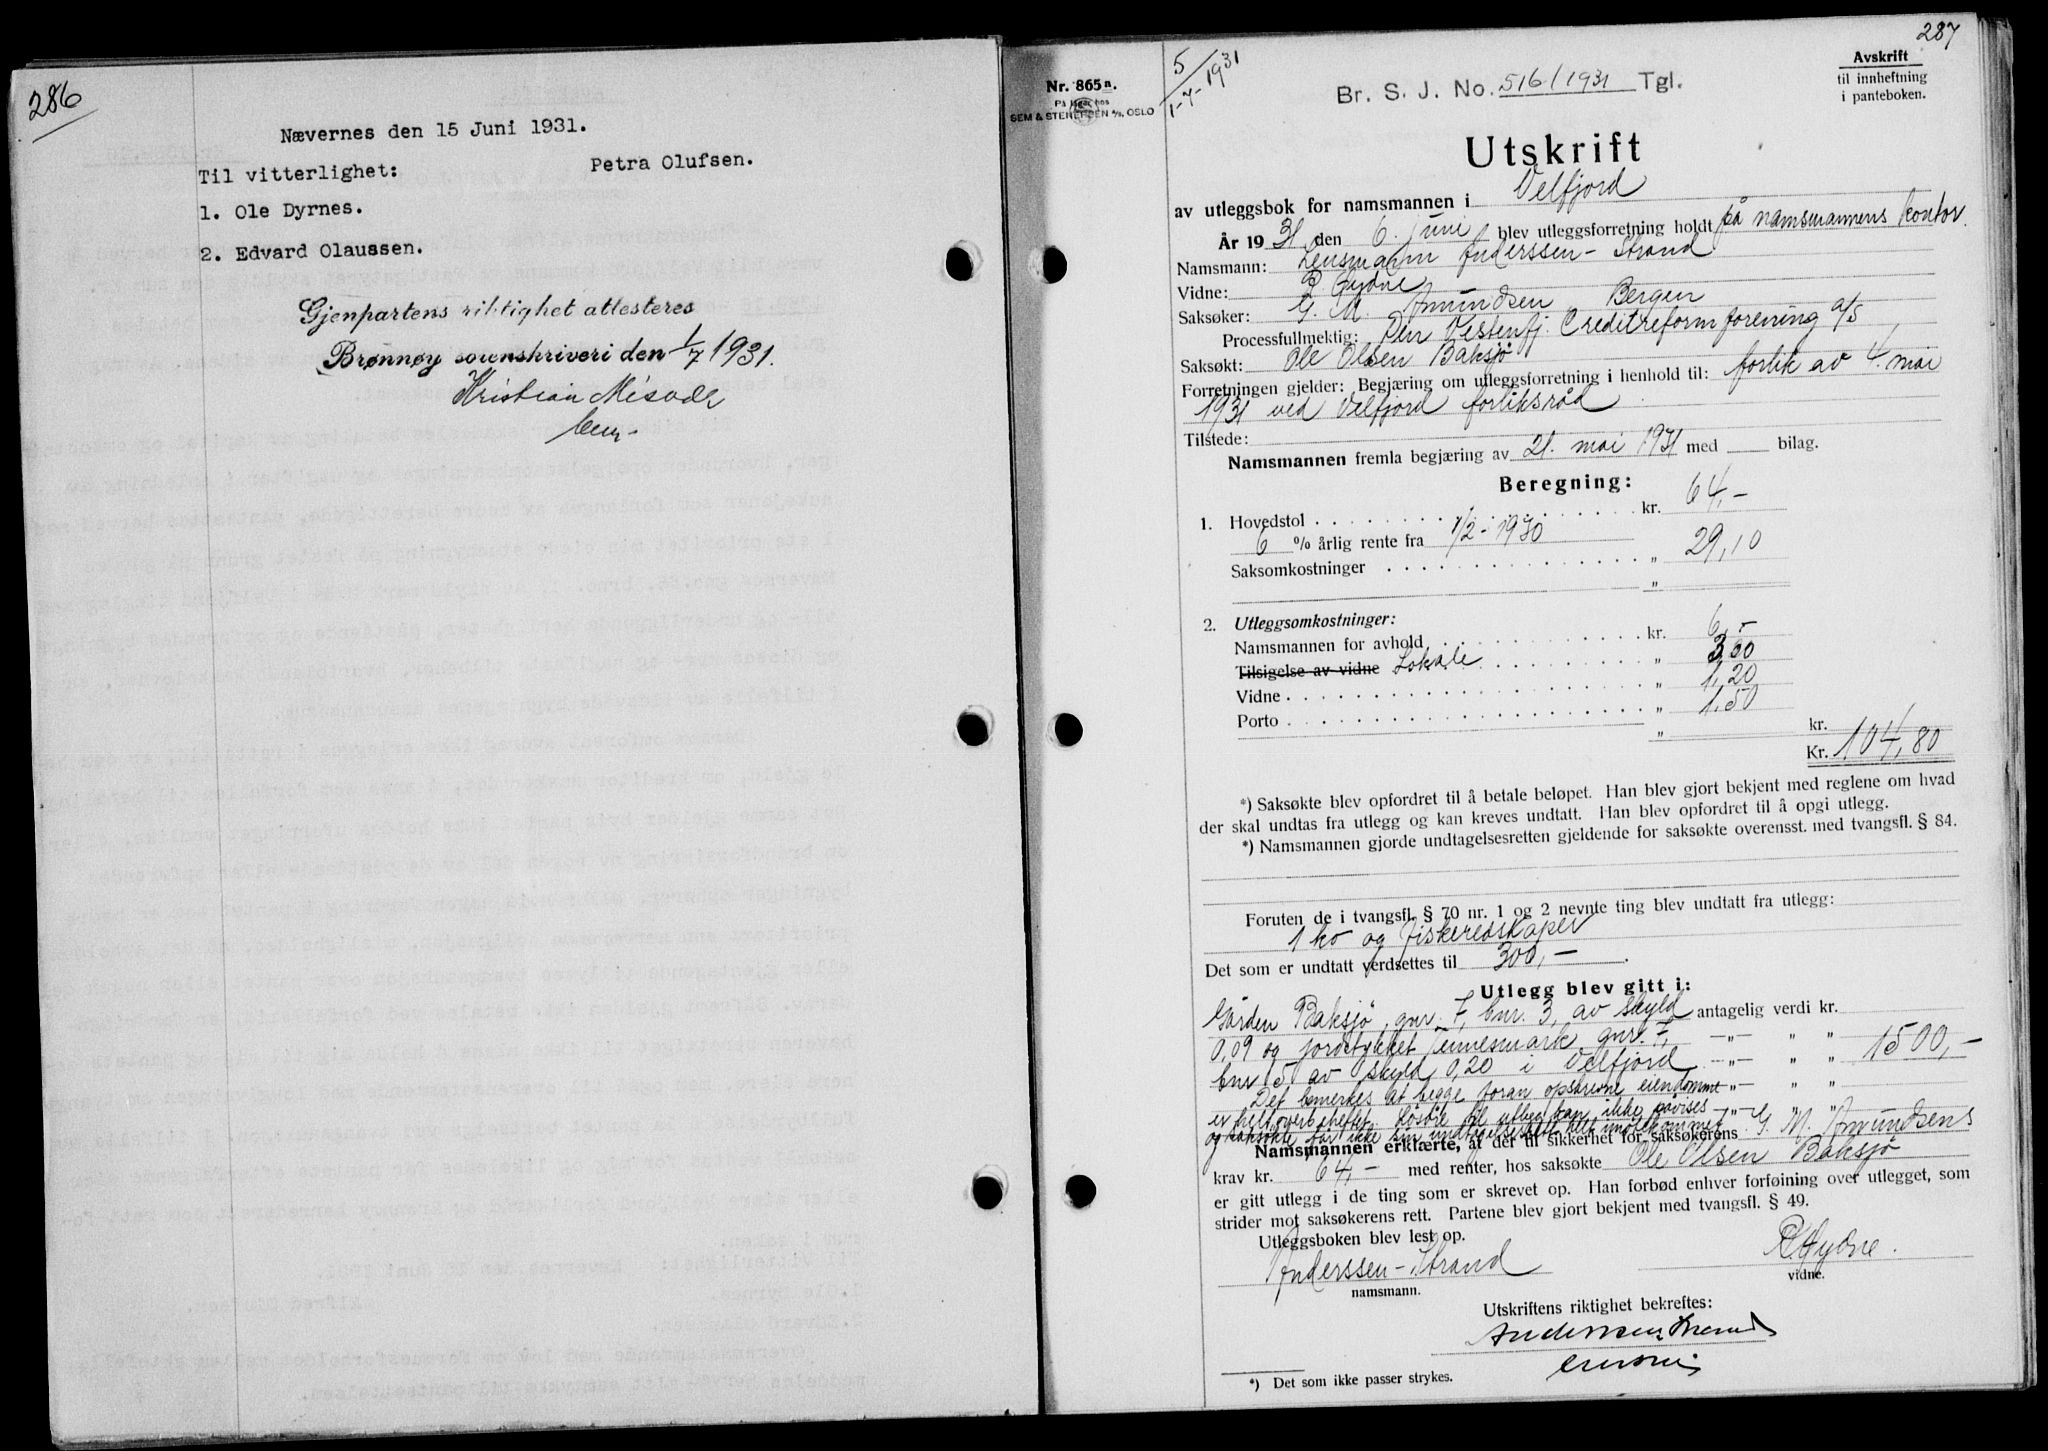 286
Nævernes den 15 Juni 1931.
Til vitterlighet:
Petra Olufsen.
1. Ole Dyrnes.
2. Edvard Olaussen.
Gjenpartens riktighet attesteres
Brønnøy sorenskriveri den 1/7 1931.
Kristian
287
Nr. 865 n.
På lager hos
SEM & STENERSEN A/S, OSLO
5
1-7-1931
Avskrift
til innheftning
i panteboken.
Br. S. J. No. 516/1931 Tgl.
Utskrift
av utleggsbok for namsmannen i Velfjord
År 1931 den 6. juni blev utleggsforretning holdt på namsmannens kontor.
Namsmann: Lensmann Anderssen-Strand
Vidne: P. Gydne
Saksøker: G. M. Amundsen, Bergen
Processfullmektig: Den Vestenfj. Creditreformforening a/s
Saksøkt: Ole Olsen Baksjø
Forretningen gjelder: Begjæring om utleggsforretning i henhold til: forlik av 4. mai
1931 ved Velfjord forliksråd
Tilstede:
Namsmannen fremla begjæring av 21. mai 1931 med bilag.
Beregning:
1. Hovedstol kr. 64,-
6 % årlig rente fra 1/2-1930
Saksomkostninger „ 29,10
„
2. Utleggsomkostninger:
Namsmannen for avhold kr. 6,-
Tilsigelse av vidne Lokale „ 3,00
Vidne „ 1,20
Porto „ 1,50
„ kr.
Kr. 104,80
*) Saksøkte blev opfordret til å betale beløpet. Han blev gjort bekjent med reglene om hvad
der skal undtas fra utlegg og kan kreves undtatt. Han blev opfordret til å opgi utlegg.
*) Namsmannen gjorde undtagelsesretten gjeldende for saksøkte overensst. med tvangsfl. § 84.
Foruten de i tvangsfl. § 70 nr. 1 og 2 nevnte ting blev undtatt fra utlegg:
1 ko og fiskeredskaper
Det som er undtatt verdsettes til 300,-
Utlegg blev gitt i:
Gården Baksjø, gnr. 7, bnr. 3, av skyld antagelig verdi kr.
0,09 og jordstykket Tennesmark gnr. 7, -„- „ „
bnr 5 av skyld 0,20 i Velfjord -„- „ „ 1500,-
Det bemerkes at begge foran opskrevne eiendomme -„- „ „
er helt overbeheftet. Løsøre til utlegg kan ikke påvises -„- „ „
og saksøkte får ikke sin undtagelsesrett helt imøtekommet. G. M. Amundsens
Namsmannen erklærte, at det til sikkerhet for saksøkerens
krav kr. 64,- med renter, hos saksøkte Ole Olsen Baksjø
er gitt utlegg i de ting som er skrevet op. Han forbød enhver forføining over utlegget, som
strider mot saksøkerens rett. Partene blev gjort bekjent med tvangsfl. § 49.
Utleggsboken blev lest op.
Anderssen-Strand
P. Gydne.
namsmann.
vidne.
Utskriftens riktighet bekreftes:
Anderssen Strand
*) Det som ikke passer strykes.